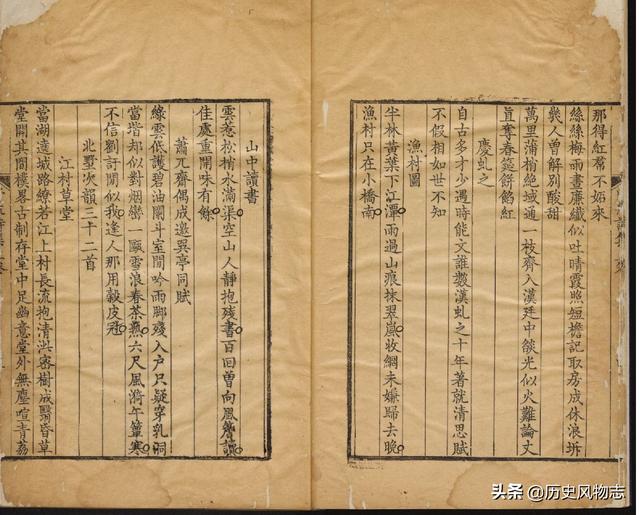 那得紅裙不妬來
絲絲梅雨畫廉纖似吐晴霞照短檐記取房成休浪坼
幾人曾解别酸甜
萬里蒲梢絶域通一枝齊入漢廷中燄光似火難論丈
直奪春筵餅餡紅
慶虬之
自古多才少遇時能文誰數漢虬之十年著就清思賦
不假相如世不知
漁村圖
半林黃葉下江潭雨過山痕抹翠嵐收網未嫌歸去晚
漁村只在小橋南
山中讀書
雲惹松梢水滿渠空山人靜抱殘書百回曾向風簷讀
佳處重開味有餘
蕭兀齋偶成邀異亭同賦
綠雲低護碧油闌斗室閒吟雨脚殘入户只疑穿乳洞
當堦却似對烟巒一甌雪浪春茶熟六尺風漪午簟寒
不信劉訏閒似我逢人那用縠皮冠
北墅次韻三十二首
江村草堂
當湖達城路繚若江上村長流抱清洪密樹成翳昏草
堂開其閒樸畧古制存堂中足幽意堂外無塵喧青荔
头条 @历史风物志